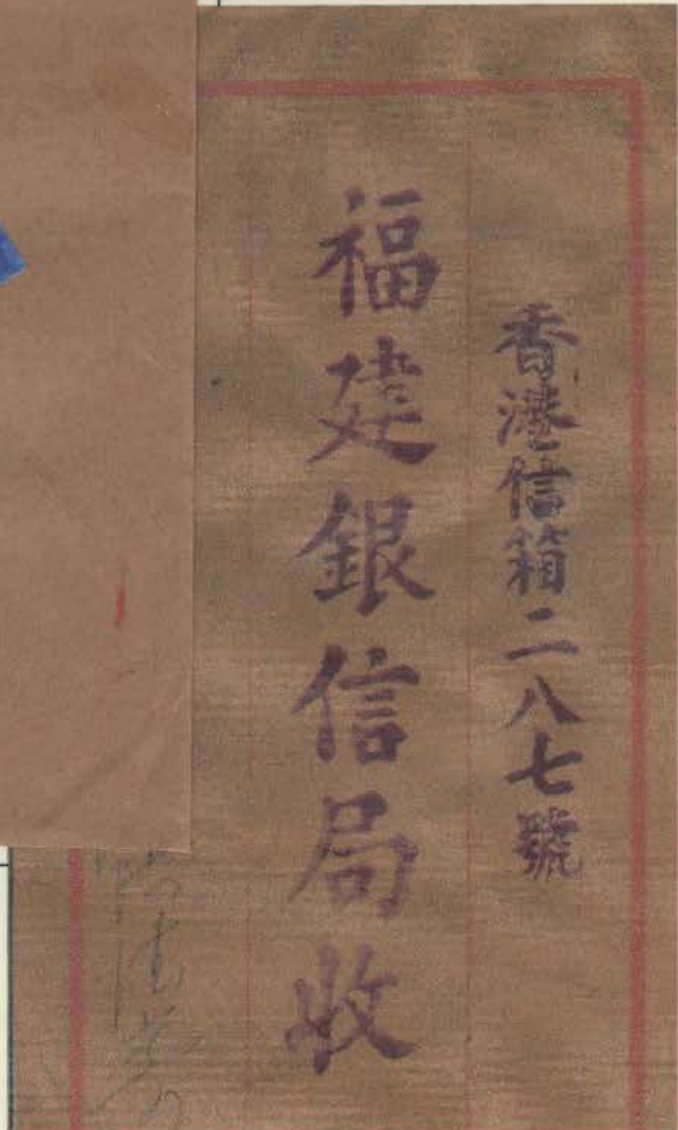 香港信箱二八七號
福建銀信局收